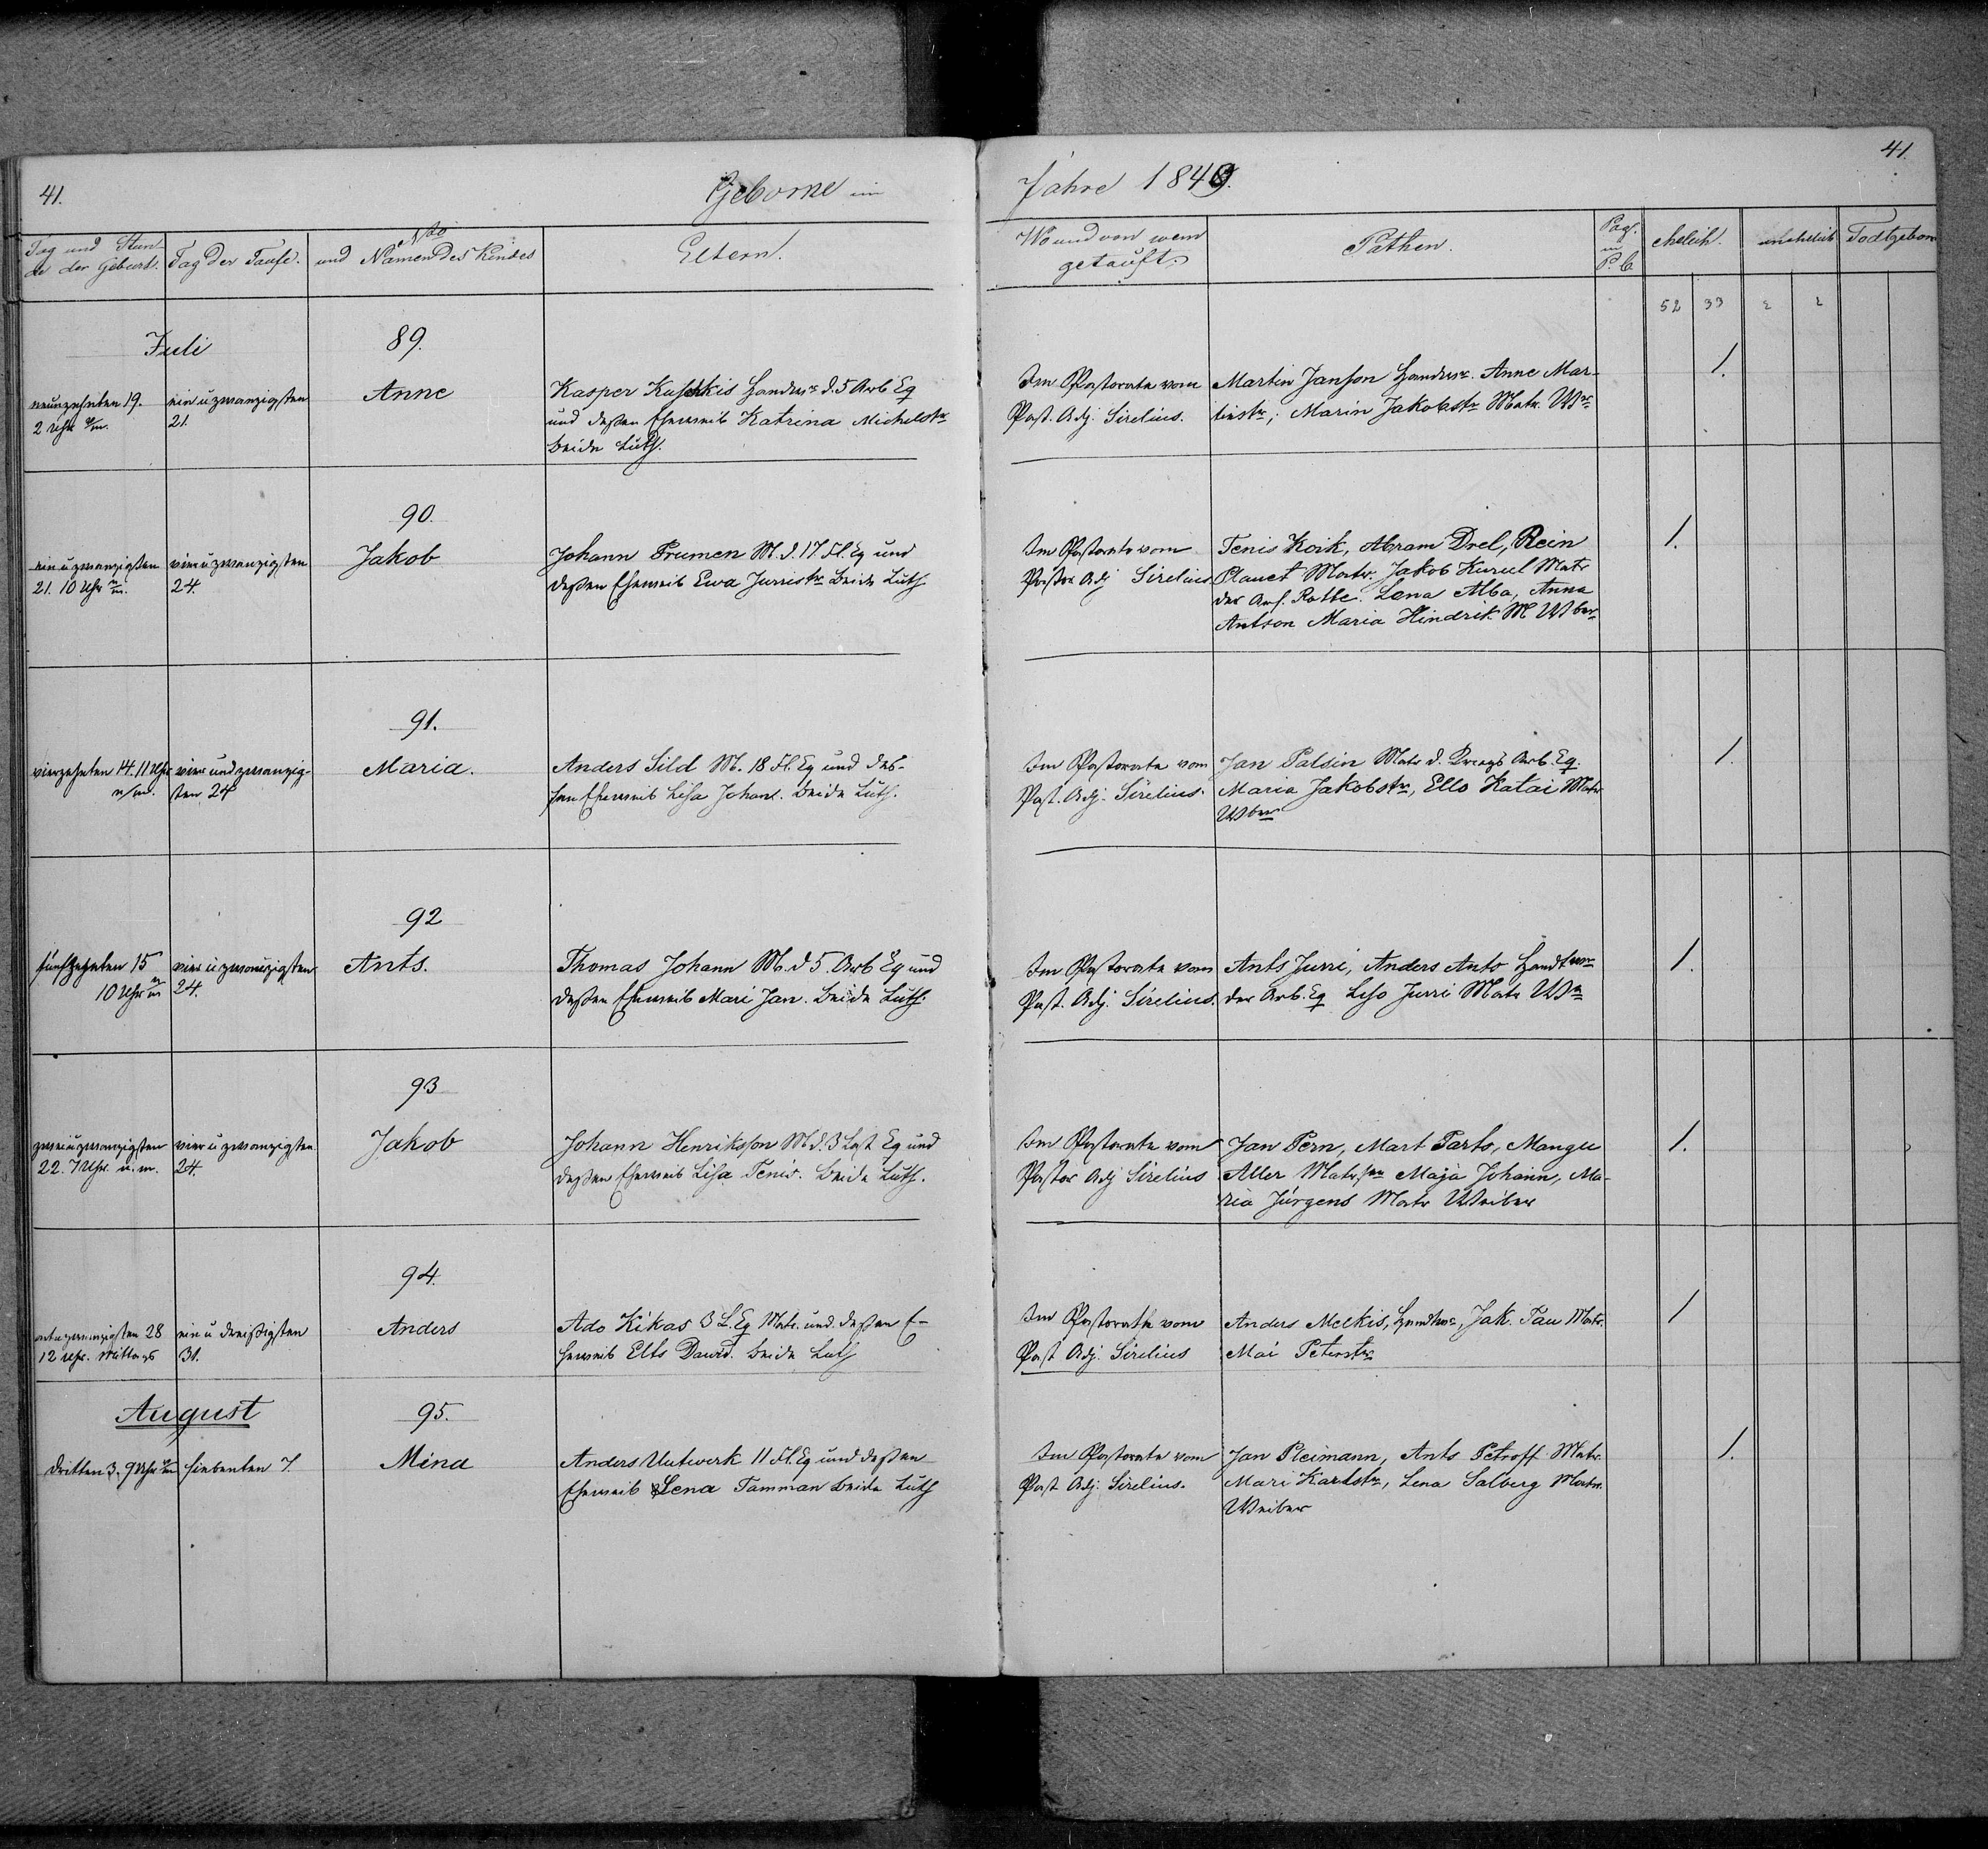 41.
Geborne im
Jahre 1849.
41.
Tag und Stun-
de der Geburt.
Tag der Taufe.
No
und Namen des Kindes
Eltern.
Wo und von wem
getauft.
Pathen.
Pag.
in
P. b
ehelich.
unehelich
Todtgeborn
52 33 2 2
Juli
89.
neunzehnten 19.
2 Uhr
ein u zwanzigsten
21.
Anne
Kasper Kuschkis Handwr d. 5 Arb Eq
und deßen Eheweib Katrina Michelstr
beide Luth.
Im Pastorate vom
Past. Adj. Sirelius.
Martin Janson Handwr. Anne Mar-
tinstr; Marin Jakobstr Matr. Wr
1.
90.
ein u zwanzigsten
21. 10 Uhr
vier u zwanzigsten
24.
Jakob
Johann Prumen M. d. 17. Fl. Eq und
deßen Eheweib Ewa Juristr beide Luth
Im Pastorate vom
Pastor Adj Sirelius
Tenis Koik, Abram Drel, Rein
Plauet Matr. Jakob Kurul Matr
der Arb. Rotte. Lena Alba, Anna
Antson Maria Hindrik M Wber
1.
91.
vierzehnten 14. 11 Uhr
n/m.
vier und zwanzig-
sten 24
Maria.
Anders Sild M. 18 Fl. Eq und des-
sen Eheweib Lisa Johan. beide Luth.
Im Pastorate vom
Past. Adj. Sirelius.
Jan Palsin Matr d. Arb. Eq.
Maria Jakobstr, Ello Katai Matr
Wber
1.
92
fünfzehnten 15
10 Uhr
vier u zwanzigsten
24.
Ants.
Thomas Johann M. d 5. Arb Eq und
deßen Eheweib Mari Jan. beide Luth.
Im Pastorate vom
Past. Adj. Sirelius.
Ants Jurri, Anders Ants Handwr
der Arb. Eq Liso Jurri Matr Wr
1.
93
zwei u zwanzigsten
22. 7 Uhr n. m.
vier u zwanzigsten
24.
Jakob
Johann Henriksson M d. 3 Last Eq und
deßen Eheweib Lisa Tenis. beide Luth.
Im Pastorate vom
Pastor Adj Sirelius
Jan Pern, Mart Parts, Mangu
Aller Matrsen Maja Johann, Ma-
ria Jürgens Matr Weiber
1.
94.
acht u zwanzigsten 28
12 Uhr. Mittags
ein u dreißigsten
31.
Anders
Ado Kikas 3 L. Eq Matr. und deßen E-
heweib Elts Dawid. beide Luth
Im Pastorate vom
Past Adj. Sirelius
Anders Melkis, Handwr, Jak. Tau Matr.
Mai Peterstr
1
August
95.
dritten 3. 9 Uhr
siebenten 7.
Mina
Anders Uutwerk 11 Fl. Eq und deßen
Eheweib Lena Tamman beide Luth
Im Pastorate vom
Past Adj. Sirelius.
Jan Pleimann, Ants Petroff Matr.
Mari Karlstr, Lena Salberg Matr.
Weiber
1.